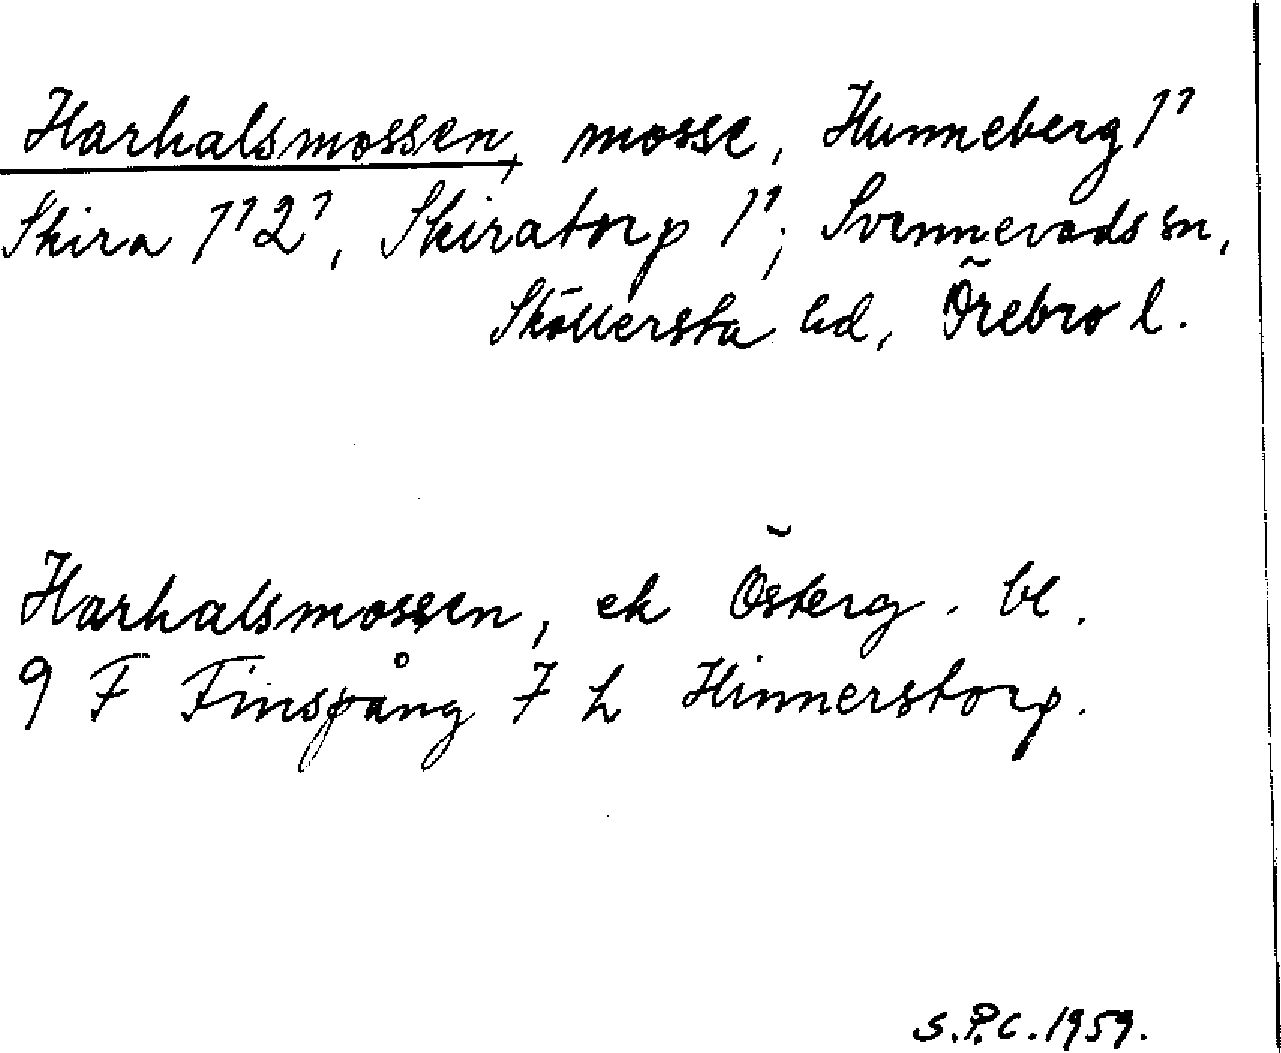 Harhalsmossen, mosse, Hunneberg 1¹
Skira 1¹ 2¹, Skiratorp 1¹; Svennevads sn,
Sköllersta hd, Örebro l.
Harhalsmossen, ek Österg. bl.
9 F Finspång 7 h Hinnerstorp.
S.P.C. 1959.